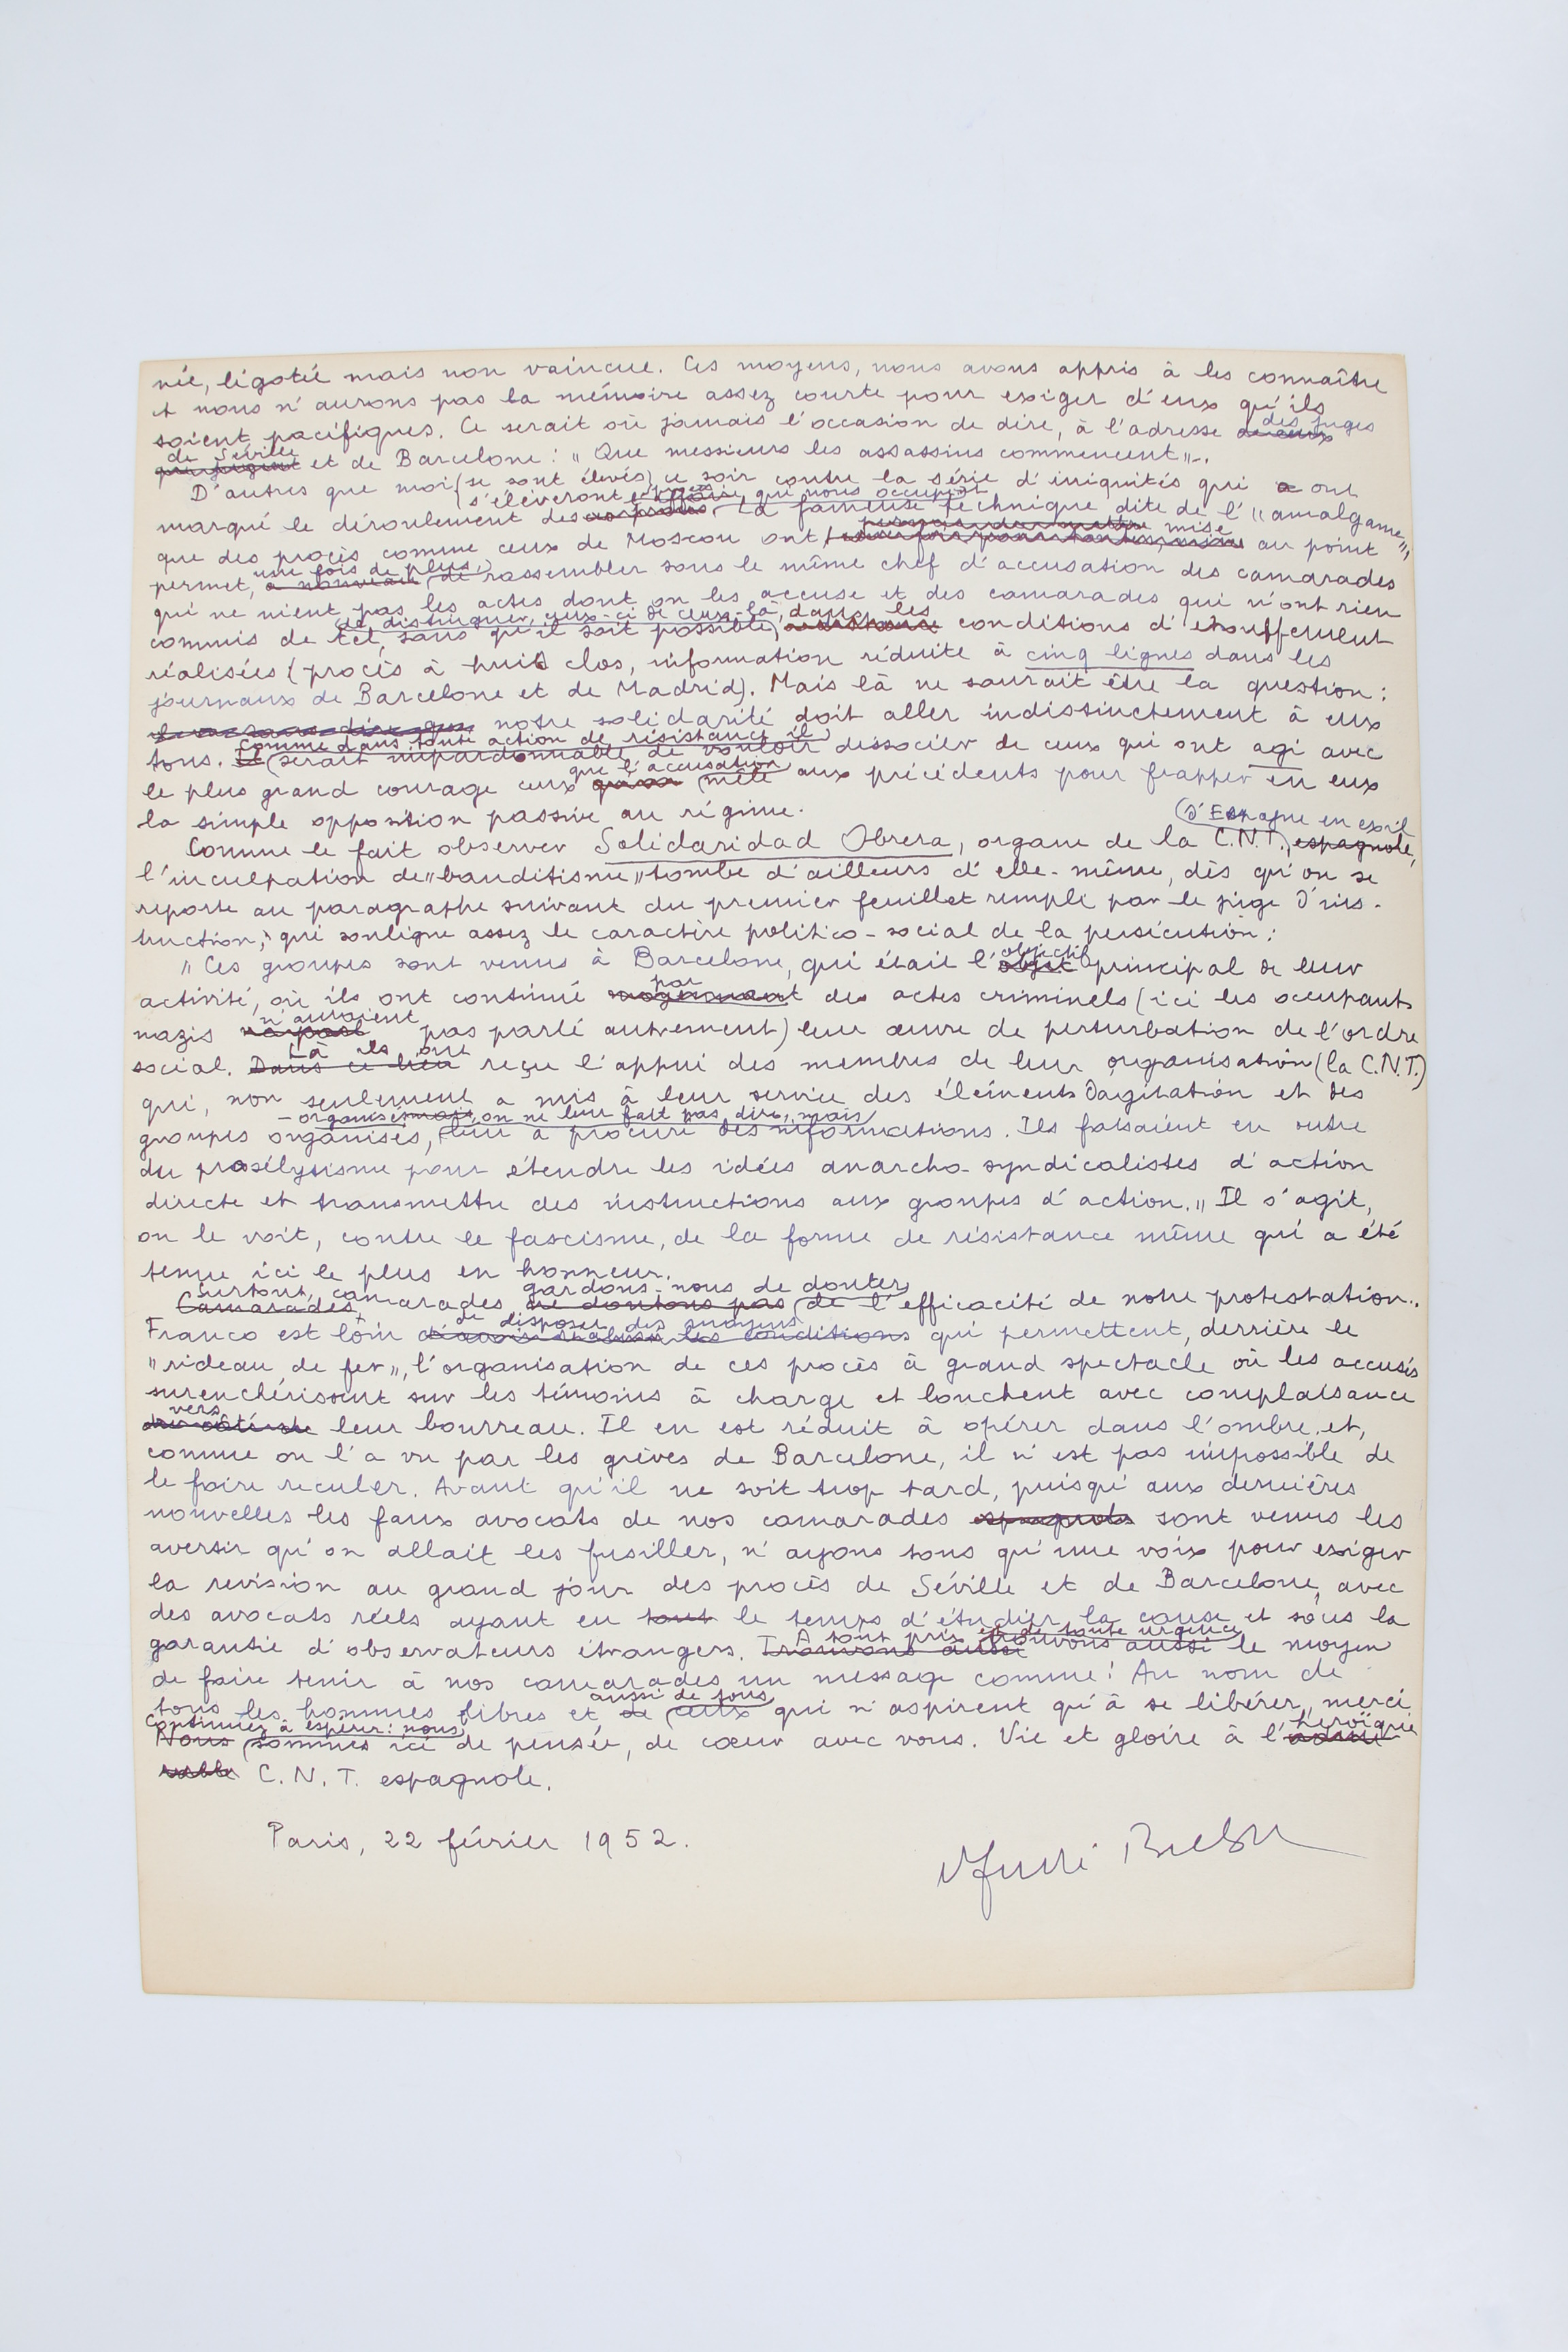 née, ligotée mais non vaincue. Ces moyens, nous avons appris à les connaître
et nous n'aurons pas la mémoire assez courte pour exiger d'eux qu'ils
soient pacifiques. Ce serait où jamais l'occasion de dire, à l'adresse de ceux des juges
de Séville et de Barcelone : "Que messieurs les assassins commencent".
D'autres que moi (se sont élevés) ce soir contre la série d'iniquités qui a ont
s'élèveront qui nous occupent
marqué le déroulement des procès. La fameuse technique dite de l'"amalgame",
que des procès comme ceux de Moscou ont mise au point
permet, une fois de plus, à nouveau de rassembler sous le même chef d'accusation des camarades
qui ne nient pas les actes dont on les accuse et des camarades qui n'ont rien
commis de tel, sans qu'il soit possible de distinguer ceux-ci de ceux-là, dans les conditions d'étouffement
réalisées (procès à huis clos, information réduite à cinq lignes dans les
journaux de Barcelone et de Madrid). Mais là ne saurait être la question :
il va sans dire que notre solidarité doit aller indistinctement à eux
tous. Il Comme dans toute action de résistance il serait impardonnable de vouloir dissocier de ceux qui ont agi avec
le plus grand courage ceux que l'accusation mêle aux précédents pour frapper en eux
la simple opposition passive au régime.
Comme le fait observer Solidaridad Obrera, organe de la C.N.T. espagnole, d'Espagne en exil
l'inculpation de "banditisme" tombe d'ailleurs d'elle-même, dès qu'on se
reporte au paragraphe suivant du premier feuillet rempli par le juge d'ins-
truction, qui souligne assez le caractère politico-social de la persécution :
"Ces groupes sont venus à Barcelone, qui était l'objet objectif principal de leur
activité, où ils ont continué moyennant par des actes criminels (ici les occupants
nazis n'auraient pas parlé autrement) leur œuvre de perturbation de l'ordre
social. Dans ce lieu Là ils ont reçu l'appui des membres de leur organisation (la C.N.T.)
qui, non seulement a mis à leur service des éléments d'agitation et des
groupes organisés, - organisés mais, on ne leur fait pas dire, mais leur a procuré des informations. Ils faisaient en outre
du prosélytisme pour étendre les idées anarcho-syndicalistes d'action
directe et transmettre des instructions aux groupes d'action." Il s'agit,
on le voit, contre le fascisme, de la forme de résistance même qui a été
tenue ici le plus en honneur.
Camarades, Surtout, camarades, ne doutons pas gardons-nous de douter de l'efficacité de notre protestation..
Franco est loin d'avoir réalisé les conditions de disposer des moyens qui permettent, derrière le
"rideau de fer", l'organisation de ces procès à grand spectacle où les accusés
surenchérissent sur les témoins à charge et louchent avec complaisance
du côté de vers leur bourreau. Il en est réduit à opérer dans l'ombre et,
comme on l'a vu par les grèves de Barcelone, il n'est pas impossible de
le faire reculer. Avant qu'il ne soit trop tard, puisqu'aux dernières
nouvelles les faux avocats de nos camarades espagnols sont venus les
avertir qu'on allait les fusiller, n'ayons tous qu'une voix pour exiger
la revision au grand jour des procès de Séville et de Barcelone, avec
des avocats réels ayant eu tout le temps d'étudier la cause et sous la
garantie d'observateurs étrangers. Trouvons aussi A tout prix et de toute urgence trouvons aussi le moyen
de faire tenir à nos camarades un message comme : Au nom de
tous les hommes libres et de aussi de tous ceux qui n'aspirent qu'à se libérer, merci
Nous continuez à espérer : nous sommes ici de pensée, de cœur avec vous. Vie et gloire à l'admi- héroïque
rable C.N.T. espagnole.
Paris, 22 février 1952.
André Breton